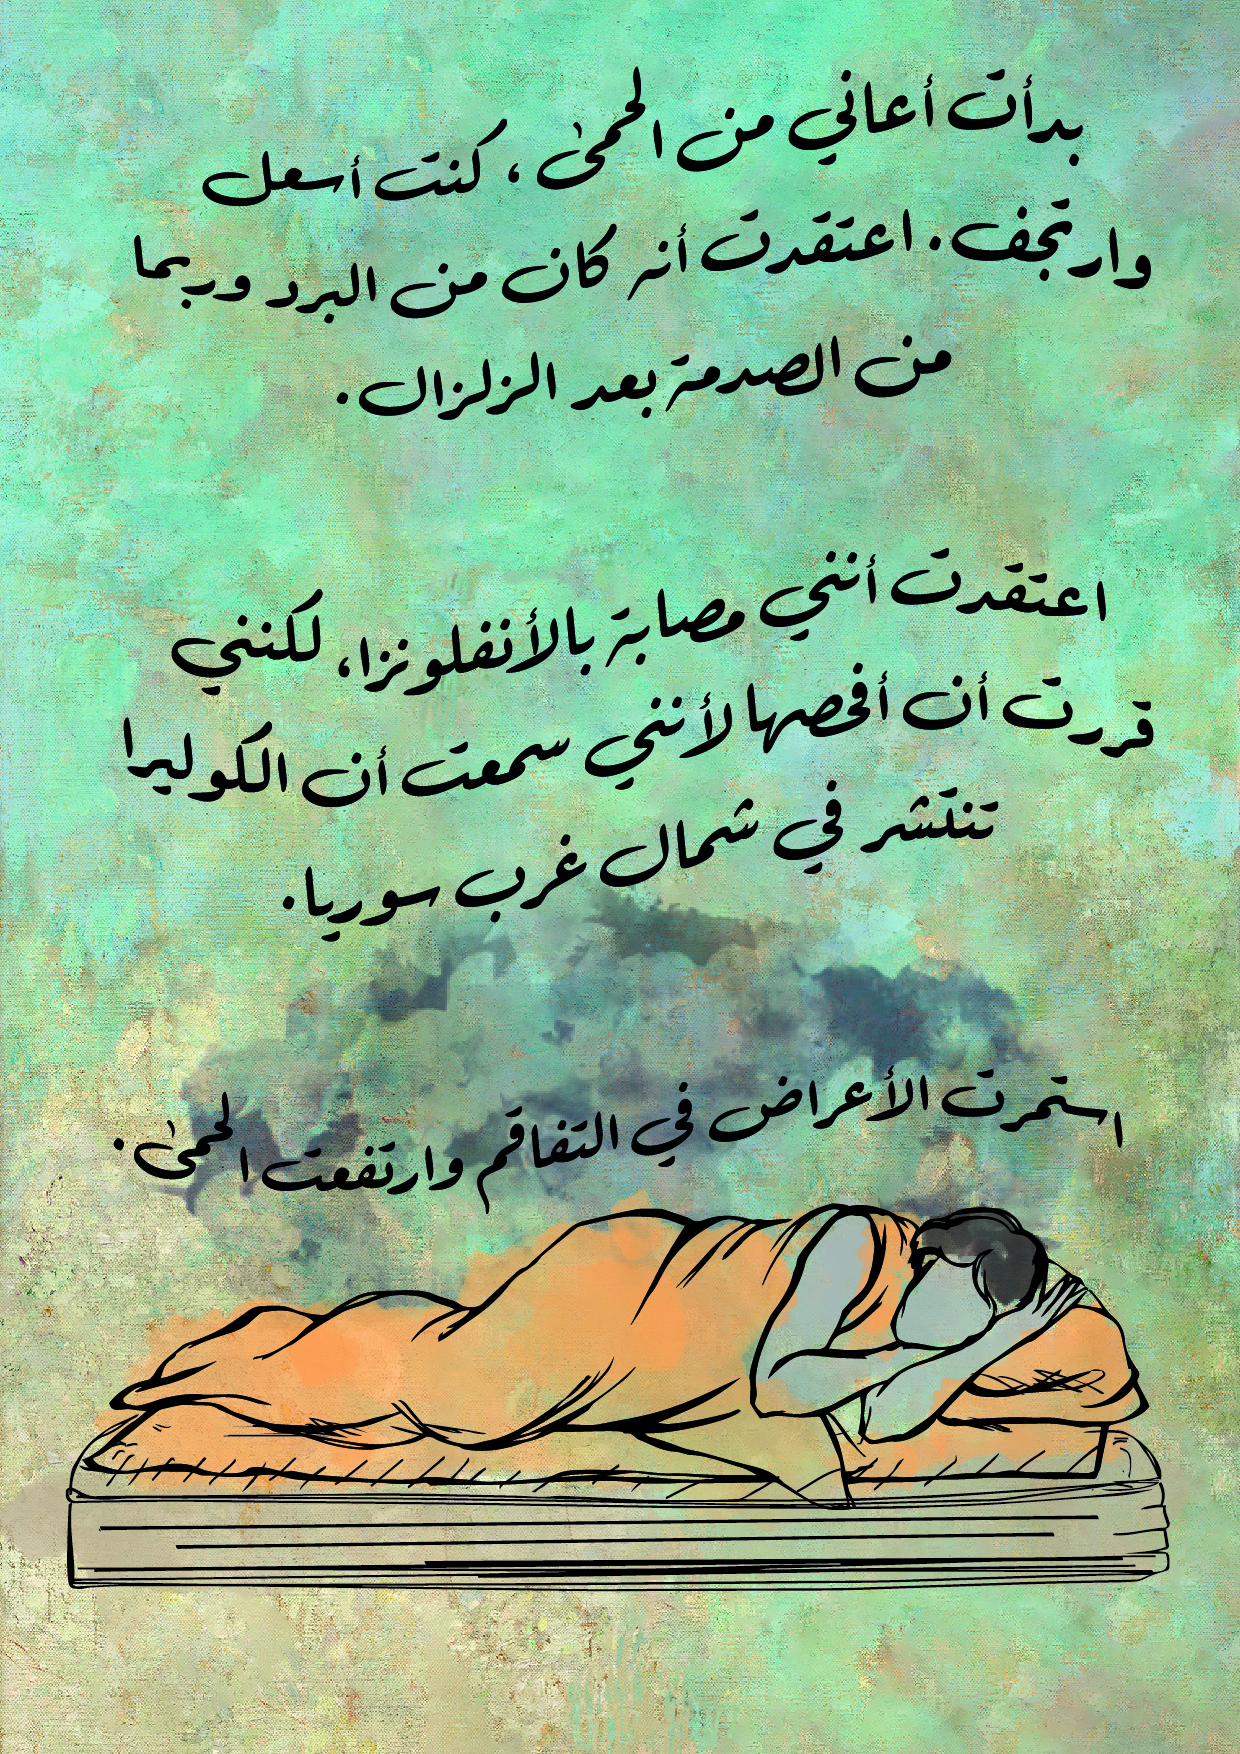 بدأت أعاني من الحمى، كنت أسعل
وارتجف. اعتقدت أنه كان من البرد وربما
من الصدمة بعد الزلزال.
اعتقدت أنني مصابة بالأنفلونزا، لكنني
قررت أن أفحصها لأنني سمعت أن الكوليرا
تنتشر في شمال غرب سوريا.
استمرت الأعراض في التفاقم وارتفعت الحمى.